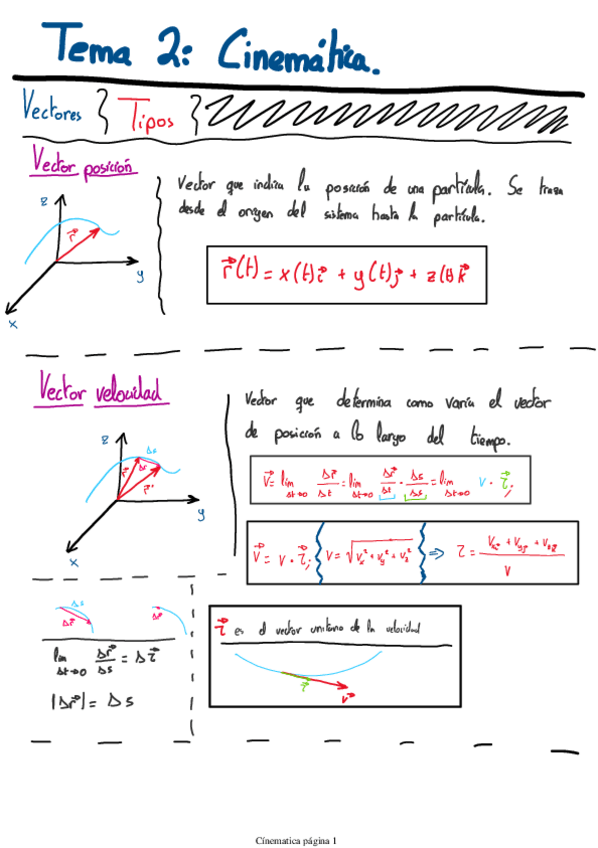 Tema 2: Cinemática.
Vectores } Tipos }
Vector posición
z
r⃗
y
x
Vector que indica la posición de una partícula. Se traza
desde el origen del sistema hasta la partícula.
r⃗(t) = x(t)i⃗ + y(t)j⃗ + z(t)k⃗
Vector velocidad
z
Δs
r⃗
Δr⃗
r⃗'
y
x
Vector que determina como varía el vector
de posición a lo largo del tiempo.
v⃗ = lim Δt→0 Δr⃗/Δt = lim Δt→0 Δr⃗/Δt · Δs/Δs = lim Δt→0 v · τ⃗;
v⃗ = v · τ⃗; v = √(vx² + vy² + vz²) ⇒ τ =
v
Δs
Δr⃗
lim Δt→0 Δr⃗/Δs = Δτ⃗
|Δr⃗| = Δs
τ⃗ es el vector unitario de la velocidad
τ⃗
v⃗
Cinematica página 1